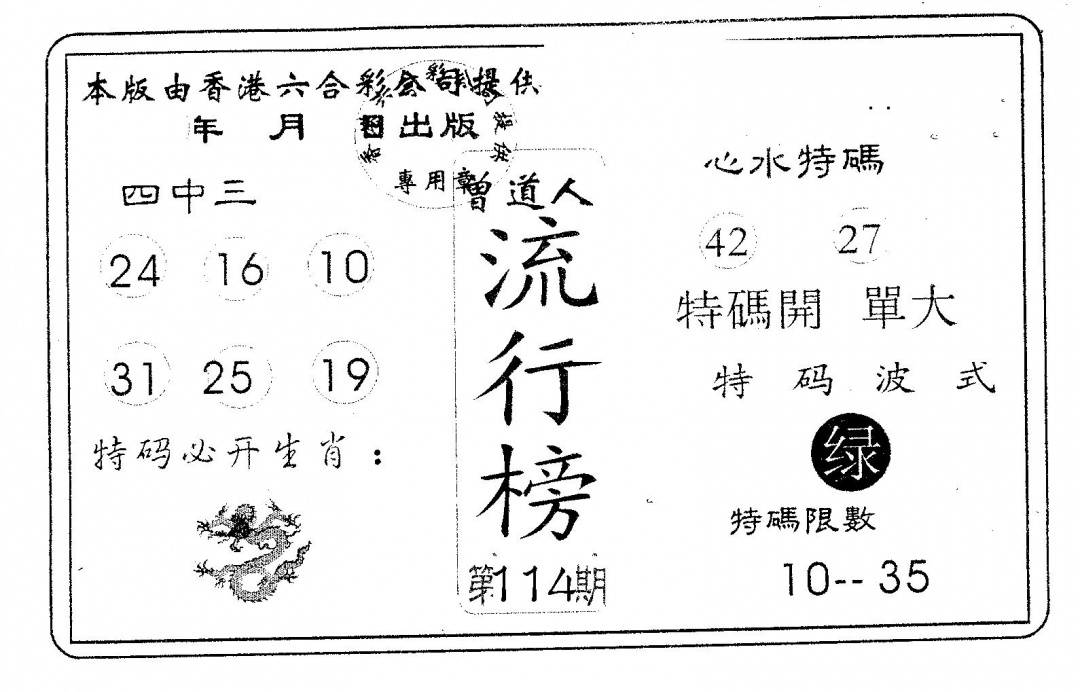 本版由香港六合彩公司提供
年 月 日出版
專用章
四中三
24 16 10
31 25 19
特码必开生肖：
曾道人
流行榜
第114期
心水特碼
42 27
特碼開 單大
特码波式
绿
特碼限數
10--35